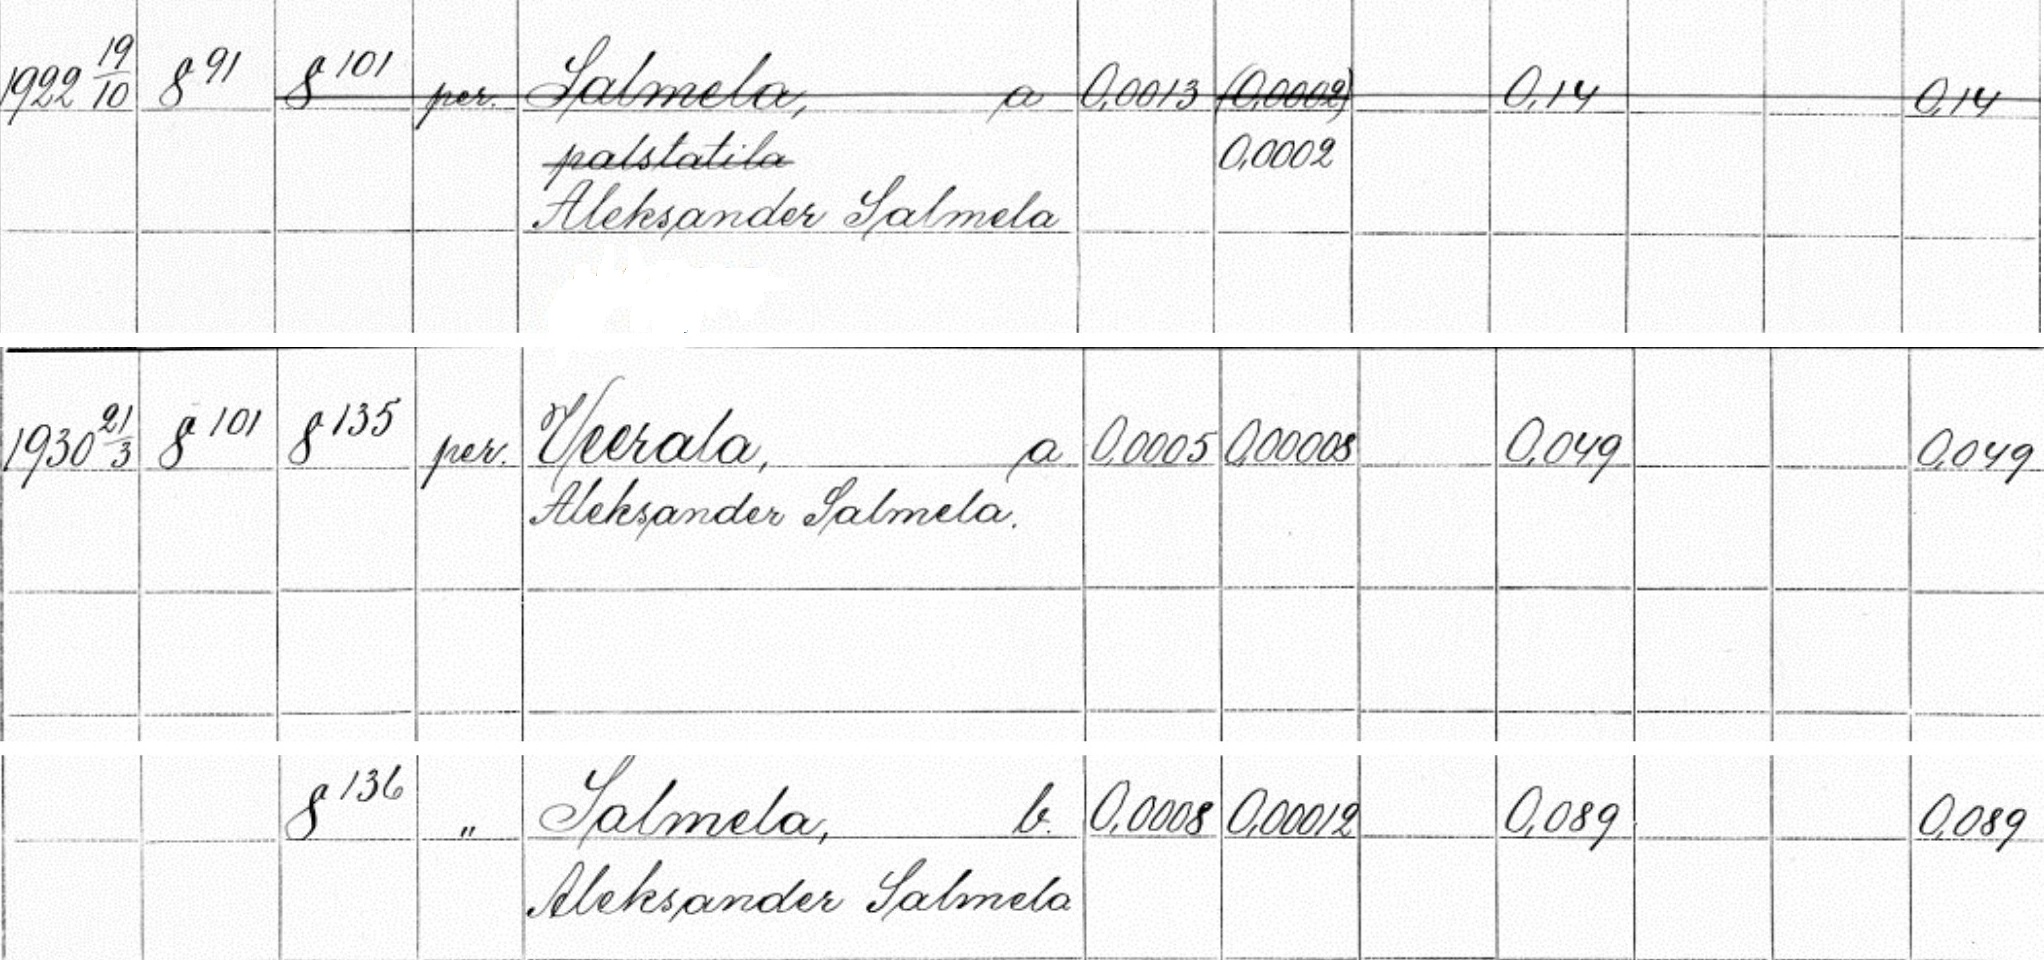 1922 19/10 8 91 8 101 per. Salmela, a 0,0013 (0,0002) 0,14 0,14
palstatila 0,0002
Aleksander Salmela
1930 21/3 8 101 8 135 per. Veerala, a 0,0005 0,00008 0,049 0,049
Aleksander Salmela.
8 136 „ Salmela, b. 0,0008 0,00012 0,089 0,089
Aleksander Salmela